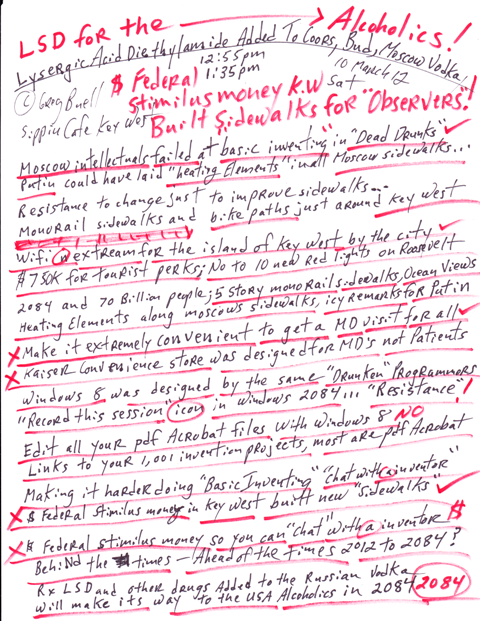 LSD for the → Alcoholics!
Lysergic Acid Diethylamide Added To Coors, Bud, Moscow Vodka!
© Greg Buell 12:55pm 1:35pm 10 March 12
$ Federal Sat
Stimilus money K.W
Sippin Cafe Key West Built Sidewalks for "Observers"!
Moscow intellectuals failed at "basic inventing" in "Dead Drunks"
Putin could have laid "heating Elements" in all Moscow sidewalks...
Resistance to change just to improve sidewalks...
MonoRail sidewalks and bike paths just around Key West
Wifi in extream for the island of Key West by the city
$750K for tourist perks; No to 10 new Red lights on Roosevelt
2084 and 70 Billion people; 5 Story monoRail sidewalks, Ocean Views
Heating Elements along moscows sidewalks, icy remarks for Putin
X Make it extremely convenient to get a MD visit for all
X Kaiser Convenience store was designed for MD's not Patients
Windows 8 was designed by the same "Drunken" Programmers
"Record this session" icon in Windows 2084... "Resistance"!
Edit all your pdf Acrobat files with Windows 8 NO
Links to your 1,001 invention projects, most are pdf Acrobat
Making it harder doing "Basic Inventing" "Chat with a inventor"
X $ Federal Stimilus money in Key West built new "sidewalks"
X $ Federal stimilus money so you can "Chat" with a inventor $
Behind the times – Ahead of the Times 2012 to 2084?
Rx LSD and other drugs Added to the Russian Vodka
will make its way to the USA Alcoholics in 2084 2084